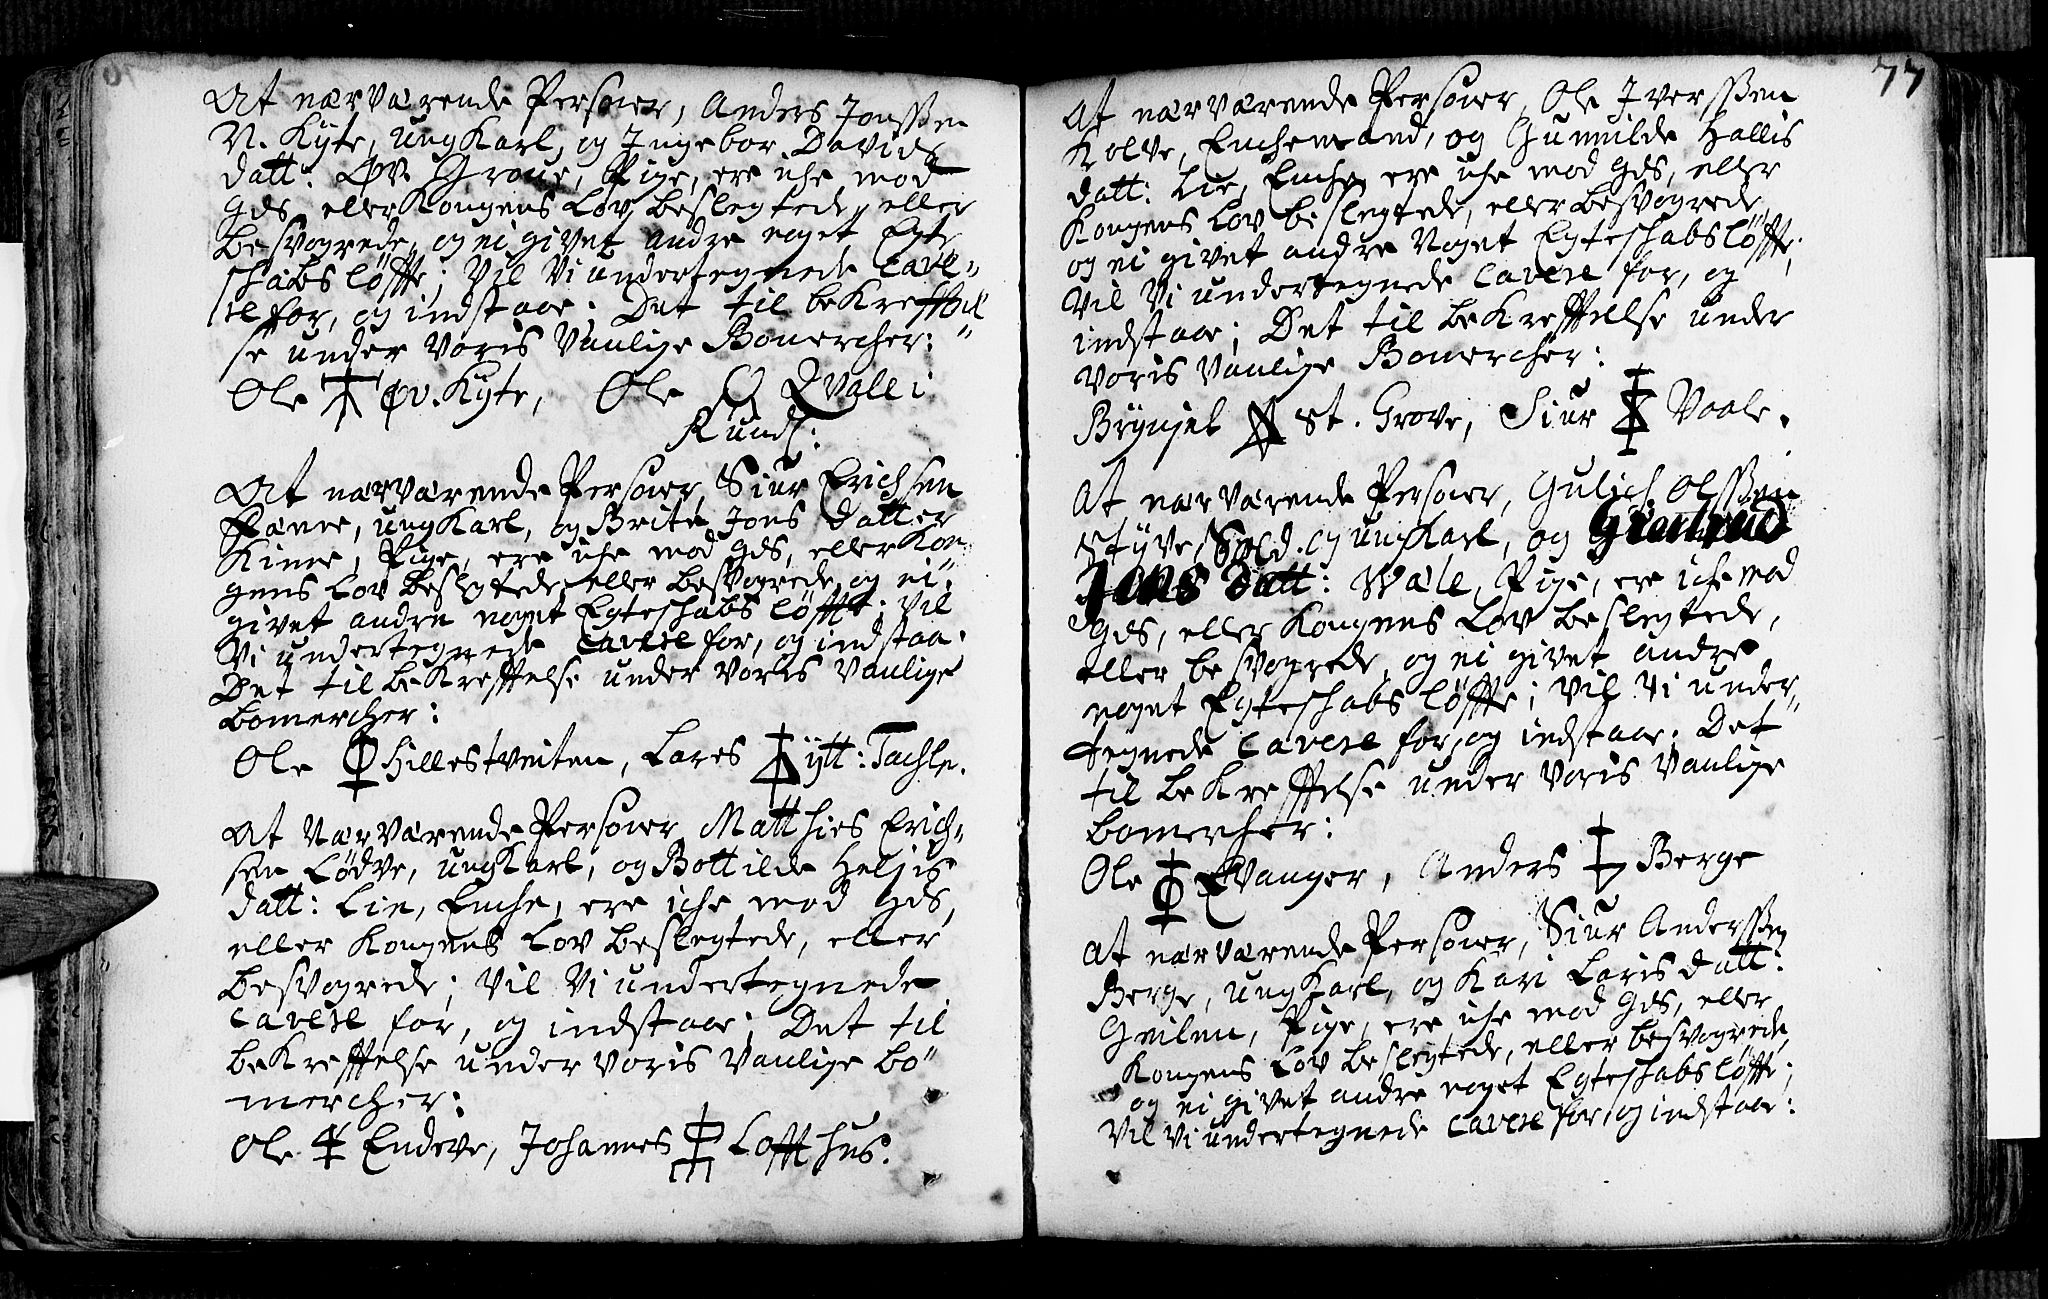 At nærværende Personer, Anders Jonssen
N. Kyte, ung Karl, og Ingebor Davids
datt: Øv. Grove, Pige, ere iche mod
Gds, eller Kongens Lov beslegtede, eller
besvogrede, og ei givet andre noget Egte
schabs løffte; Vil Vi undertegnede cave-
re for, og indstaae. Det til bekrefftel
se under voris Vanlige Bomercher:
Ole Øv. Kyte, Ole Qvalli
Runds:
At nærværende Personer, Siur Erichsen
Rævne, ung Karl, og Brite Jons datter
Kinne, Pige, ere iche mod Gds, eller Kon
gens Lov beslegtede, eller besvogrede, og ei
givet andre noget Egteschabs løffte; Vil
Vi undertegnede cavere for, og indstaa.
Det til bekreffelse under voris Vanlige
bomercher:
Ole Hillestveiten, Lares ytt: Tachle.
At Nærværende Personer Matthies Erich-
sen Lødve, ung Karl, og Bottilde Heljis
datt: Lie, Enche, ere iche mod Gds,
eller Kongens Lov beslegtede, eller
besvogrede; Vil Vi undertegnede
cavere for, og indstaae; Det til
bekreffelse under voris Vanlige bo
mercher:
Ole Endeve, Johannes Loffthus.
77
At nærværende Personer, Ole Iverssen
Kolve, Enchemand, og Gunnilde Hallis
datt: Lie, Enche ere iche mod Gds, eller
Kongens Lov beslegtede, eller besvogrede,
og ei givet andre Noget Egteschabs løffte;
Vil Vi undertegnede cavere for, og
indstaae; Det til bekreffelse under
voris Vanlige Bomercher:
Brynjel st. Grove, Siur Vaale.
At nærværende Personer, Gulich Olssen
Styve, Sold. og ung Karl, og Giertrud
Jons datt: Wæle, Pige, ere iche mod
Gds, eller Kongens Lov beslegtede,
eller besvogrede, og ei givet andre
noget Egteschabs løffte; Vil Vi under-
tegnede cavere for, og indstaae. Det
til bekreffelse under voris Vanlige
bomercher:
Ole Evanger, Anders Berge
At nærværende Personer, Siur Anderssen
Berge, ung Karl, og Kari Laris datt:
Geilen, Pige, ere iche mod Gds, eller
Kongens Lov beslegtede, eller besvogrede,
og ei givet andre noget Egteschabs løffte;
Vil Vi undertegnede cavere for, og indstaae: